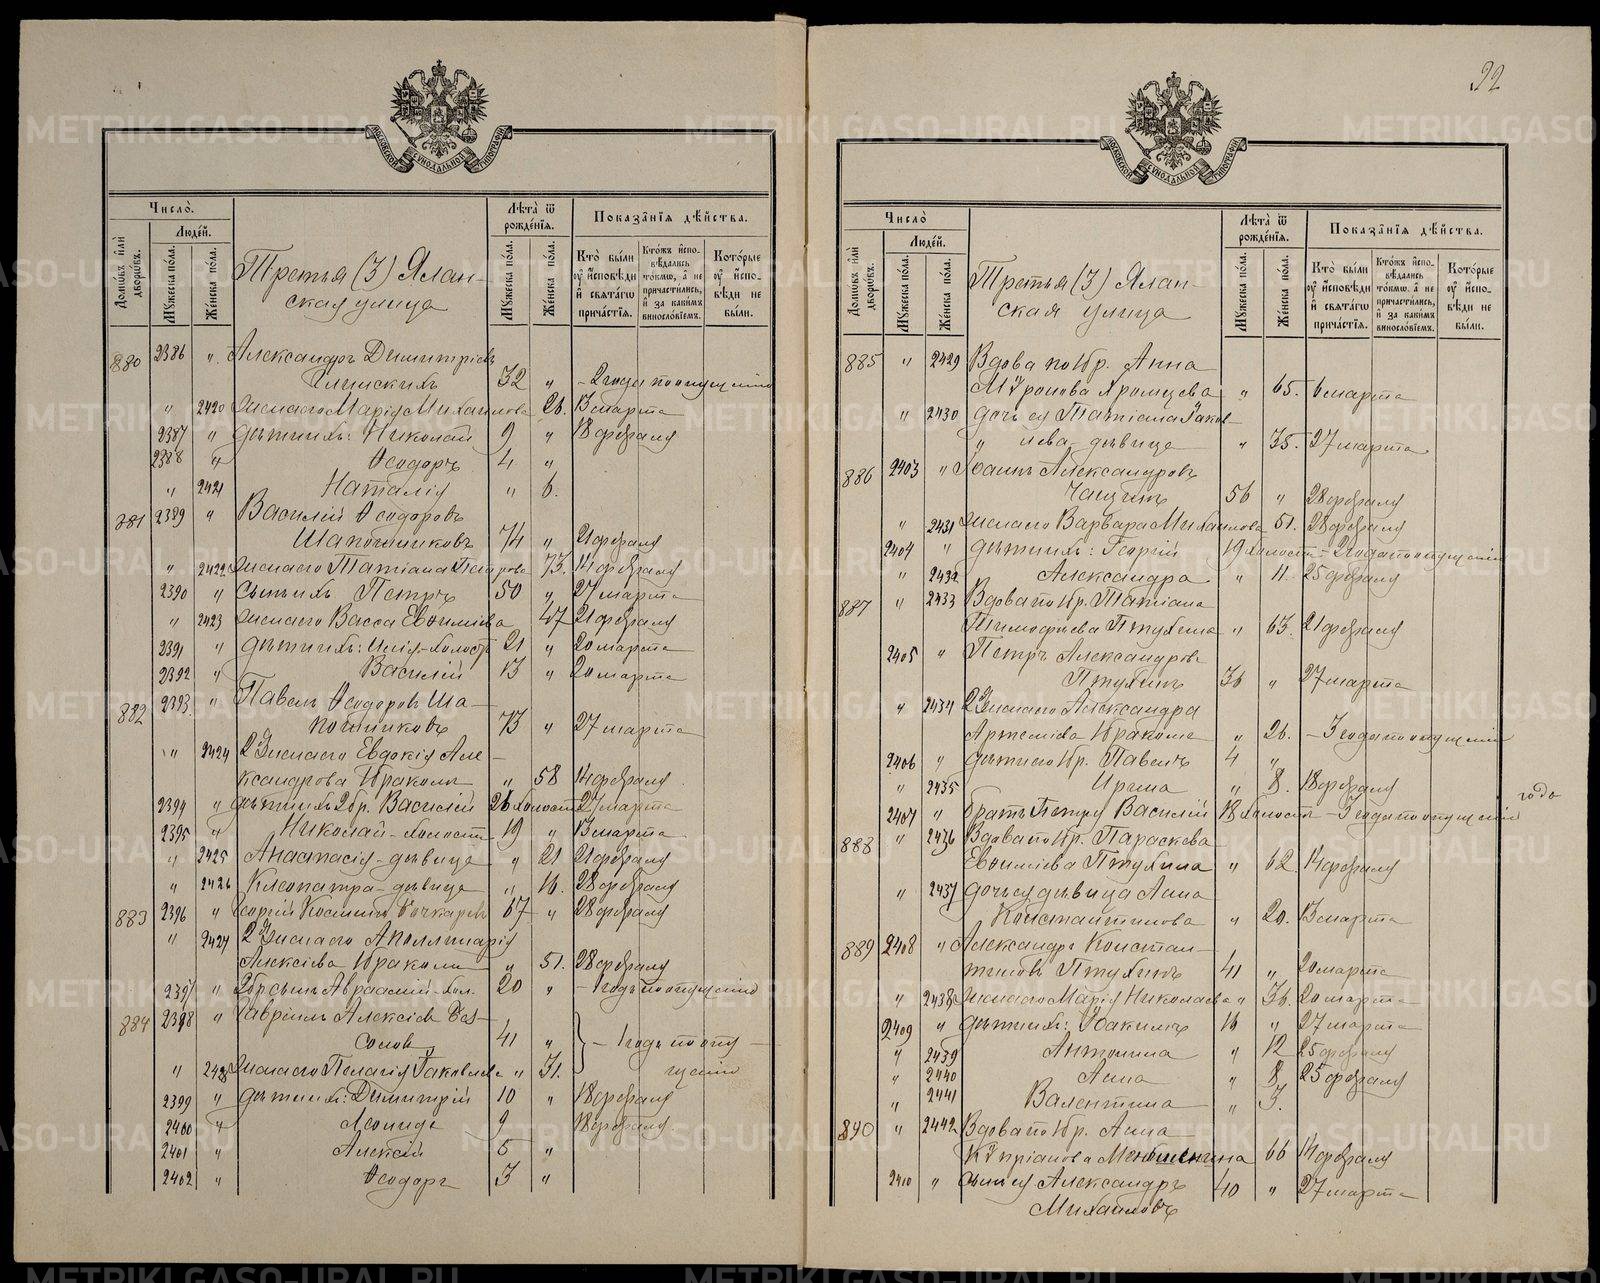 92
МОСКОВСКОЙ СѴНОДАЛЬНОЙ ТИПОГРАФІИ
Число̀.
Людей.
Домѡвъ и҆лѝ дворѡвъ.
Мꙋжеска по́ла.
Же́нска по́ла.
Третья (3) Ялан-
ская улица
Лѣта̀ ѿ рожде́нїѧ.
Мꙋжеска по́ла.
Же́нска по́ла.
Показа̑нїѧ дѣ́йства.
Кто̀ бы́ли ᲂу҆ и҆́сповѣди и҆ свѧта́гѡ прича́стїѧ.
Кто́жъ и҆спо-вѣ́дались то́кмѡ, а҆ не причасти́лись, и҆ за каки́мъ виносло́вїемъ.
Кото́рые ᲂу҆ и҆́спо-вѣди не бы́ли.
880 2386 „ Александръ Димитріевъ
32 „ - 2 года по опущенію
„ 2420 жена его Марія Михаилова 26. 13 марта
2387 „ дѣти ихъ: Николай 9 „ 18 февраля
2388 „ Ѳеодоръ 4 „
„ 2421 Наталія „ 6.
881 2389 „ Василій Ѳеодоровъ
Шапошниковъ 74 „ 21 февраля
„ 2422 жена его Татіана Петрова 73. 14 февраля
2390 „ Сынъ ихъ Петръ 50 „ 27 марта
„ 2423 жена его Васса Евѳиміева 47 21 февраля
2391 „ дѣти ихъ: Илія-холостъ 21 „ 20 марта
2392 „ Василій 13 „ 20 марта
882 2393 „ Павелъ Ѳеодоровъ Ша-
пошниковъ 73 „ 27 марта
„ 2424 2 жена его Евдокія Але-
ксандрова 1 бракомъ „ 58 14 февраля
2394 „ дѣти ихъ 2 бр. Василій 26 холостъ 27 марта
2395 „ Николай-холостъ 19 „ 13 марта
„ 2425 Анастасія-дѣвица „ 21 21 февраля
„ 2426 Клеопатра-дѣвица „ 16. 28 февраля
883 2396 „ Георгій Косминъ Бочкаревъ 67 „ 28 февраля
„ 2427 2 жена его Аполлинарія
Алексіева 1 бракомъ „ 51. 28 февраля
2397 „ 2 бр сынъ Авраамій-хол. 20 „ - 1 годъ по опущенію
884 2398 „ Гавріилъ Алексіевъ Без-
соновъ 41 „ } - 1 годъ по опу-
„ 2428 жена его Пелагія Іаковлева „ 31. щенію
2399 „ дѣти ихъ: Димитрій 10 „ 18 февраля
2400 „ Леонидъ 9 18 февраля.
2401 „ Алексій 5 „
2402 „ Ѳеодоръ 3 „
МОСКОВСКОЙ СѴНОДАЛЬНОЙ ТИПОГРАФІИ
Число̀
Людей.
Домѡвъ и҆лѝ дворѡвъ.
Мꙋжеска по́ла.
Же́нска по́ла.
Третья (3) Ялан-
ская улица
Лѣта̀ ѿ рожде́нїѧ.
Мꙋжеска по́ла.
Же́нска по́ла.
Показа̑нїѧ дѣ́йства.
Кто̀ бы́ли ᲂу҆ и҆́сповѣди и҆ свѧта́гѡ прича́стїѧ.
Кто́жъ и҆спо-вѣ́дались то́кмѡ, а҆ не причасти́лись, и҆ за каки́мъ виносло́вїемъ.
Кото́рые ᲂу҆ и҆́спо-вѣди не бы́ли.
885 „ 2429 Вдова по 1 бр. Анна
Миронова Хромцева „ 65. 6 марта
„ 2430 дочь ея Татіана Іаков-
„ лева-дѣвица „ 35. 27 марта
886 2403 „ Іоаннъ Александровъ
Чащинъ 56 „ 28 февраля
„ 2431 жена его Варвара Михаилова 51. 28 февраля
2404 „ дѣти ихъ: Георгій 19 холостъ - 2 года по опущенію
„ 2432 Александра „ 11. 25 февраля
887 „ 2433 Вдова по 1 бр. Татіана
Тимофѣева Птухина „ 63. 21 февраля
2405 „ Петръ Александровъ
Птухинъ 36 „ 27 марта
„ 2434 2 жена его Александра
Артеміева 1 бракомъ „ 26. - 3 года по опущенію
2406 „ дѣти его 1 бр. Павелъ 4 „
„ 2435 Ирина „ 8. 18 февраля
года
2407 „ братъ Петра Василій 18 холостъ - 3 года по опущенію
888 „ 2436 Вдова по 1 бр. Параскева
Евѳиміева Птухина „ 62. 14 февраля
„ 2437 дочь ея дѣвица Анна
Константинова „ 20. 13 марта
889 2408 „ Александръ Констан-
тиновъ Птухинъ 41 „ 20 марта
„ 2438 жена его Марія Николаева „ 36. 20 марта
2409 „ дѣти ихъ: Іоакимъ 16 „ 27 марта
„ 2439 Антонина „ 12 25 февраля
„ 2440 Анна „ 8. 25 февраля
„ 2441 Валентина „ 3.
890 „ 2442 Вдова по 1 бр. Анна
Кипріанова Меньшенина 66 14 февраля
2410 „ Сынъ ея Александръ 40 „ 27 марта
Михаиловъ
METRIKI.GASO-URAL.RU